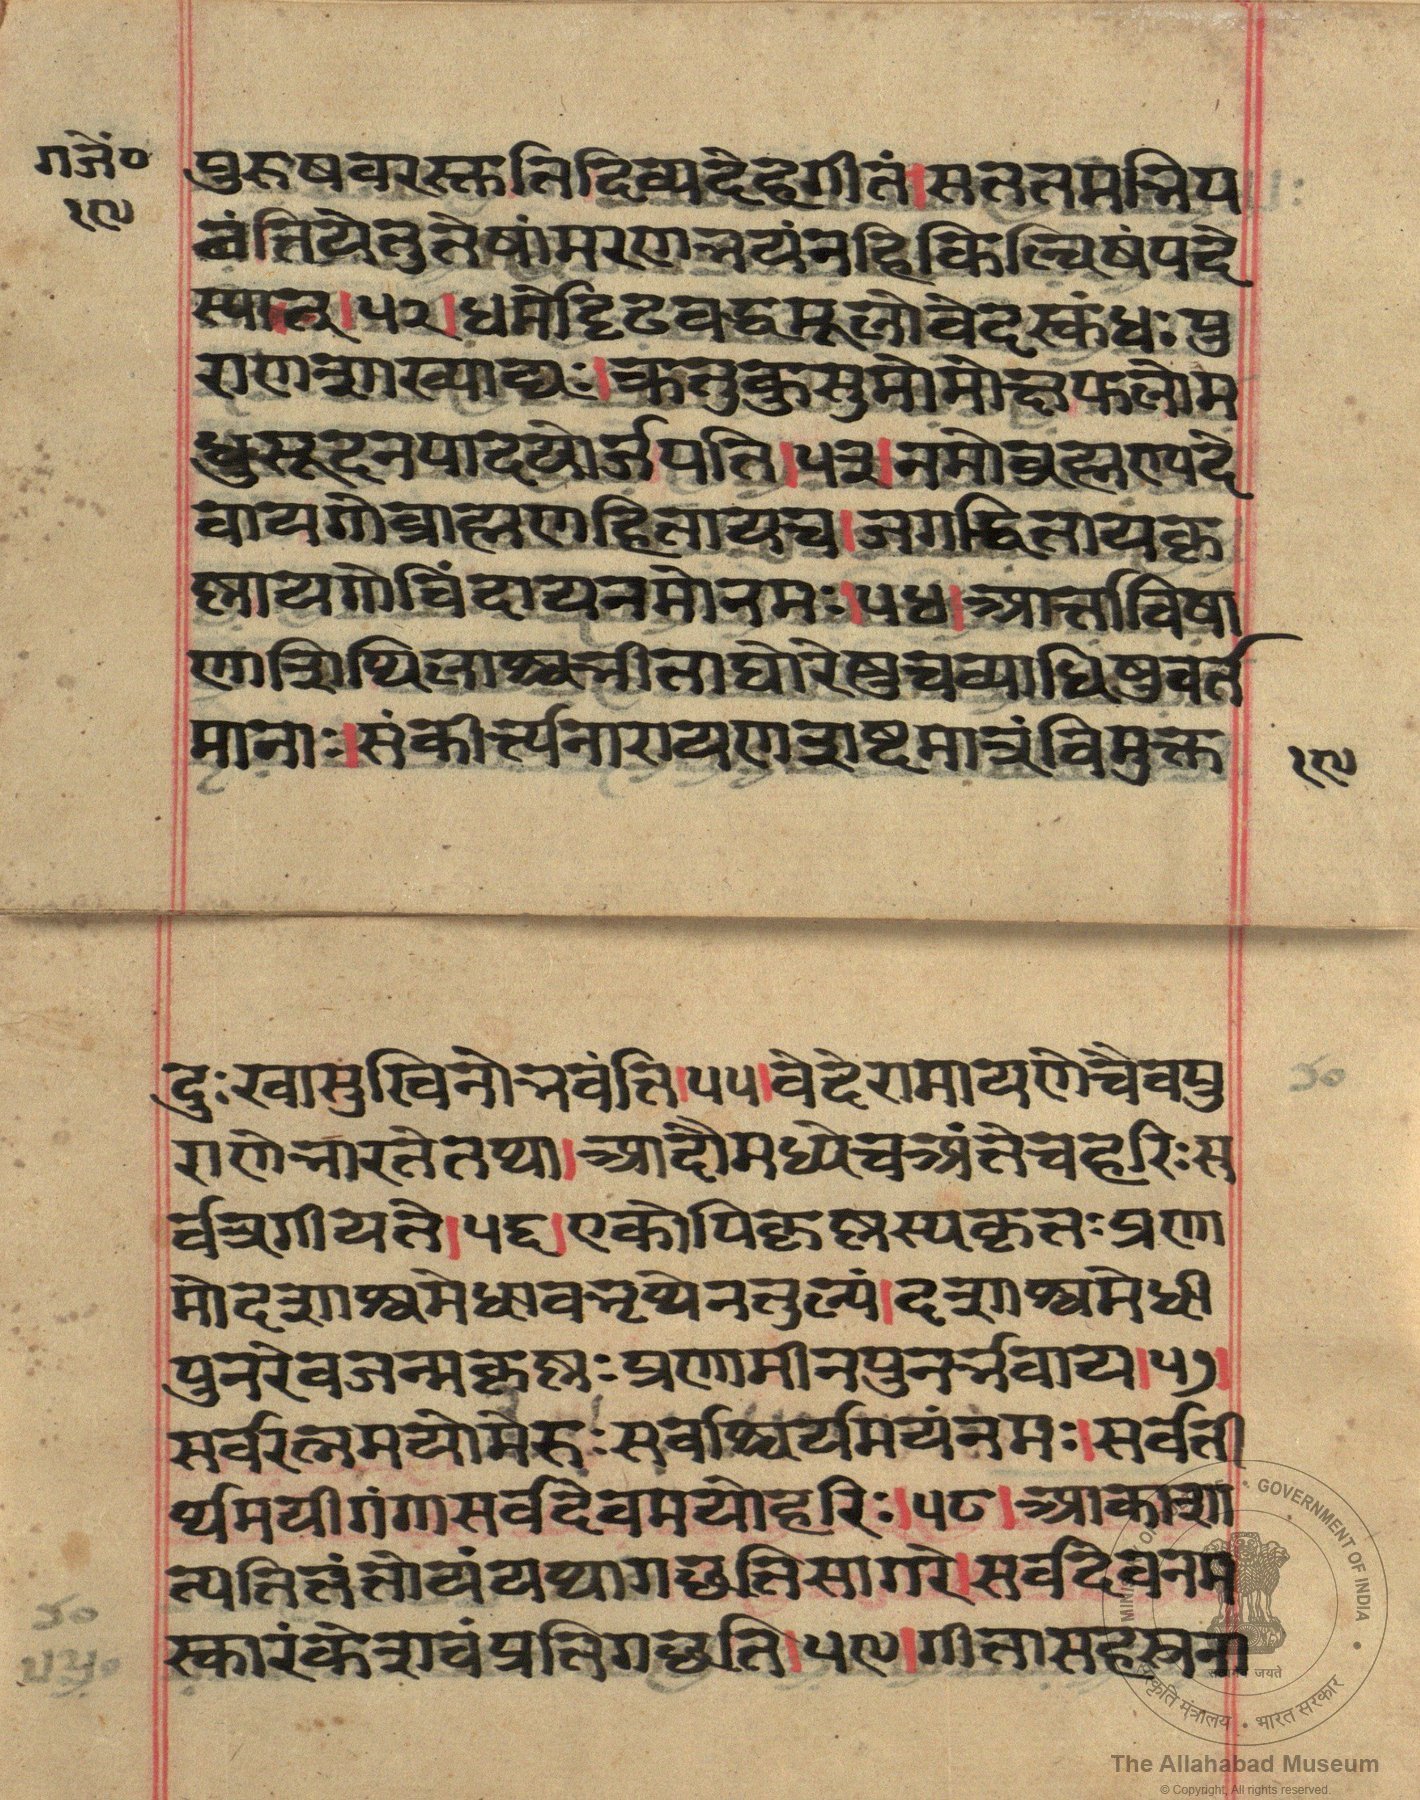 गजें०
१९
पुरुषवरस्क्तातिदिव्यदेहगीतं।सततमभिप
वंतियेतुतेषांमरणभयंनहिकिल्बिषंपदे
स्यात्।५२।धर्मेदृिढवद्धमूलोवेदस्कंधःपु
राणशाखाद्यः।क्रतुकुसुमोमोक्षफलोम
धुसूदनपादयोर्जपति।५३।नमोब्रह्मण्यदे
वायगोब्राह्मणहितायच।जगद्धितायकृ
ष्णायगोविंदायनमोनमः।५४।आर्त्ताविषा
णाशिथिलाश्चभीताघोरेषुचव्याधिषुवर्त
मानाः।संकीर्त्त्यनारायणशब्दमात्रंविमुक्त
१९
दुःखासुखिनोभवंति।५५।वेदेरामायणेचैवपु
राणेभारतेतथा।आदौमध्येचअंतेचहरिःस
र्वत्रगीयते।५६।एकोपिकृष्णस्यकृतःप्रणा
मोदशाश्वमेधावभृथेनतुल्यं।दशाश्वमेधी
पुनरेवजन्मकृष्णःप्रणामीनपुनर्भवाय।५७।
सर्वरत्नमयोमेरुःसर्वाश्चर्यमयंनमः।सर्वती
र्थमयीगंगासर्वदेवमयोहरिः।५८।आकाशा
त्पतितंतोयंयथागछतिसागरे।सर्वदेवनम
स्कारंकेशवंप्रतिगछति।५९।गीतासहस्रना
GOVERNMENT OF INDIA
संस्कृति मंत्रालय • भारत सरकार
सत्यमेव जयते
The Allahabad Museum
© Copyright, All rights reserved.